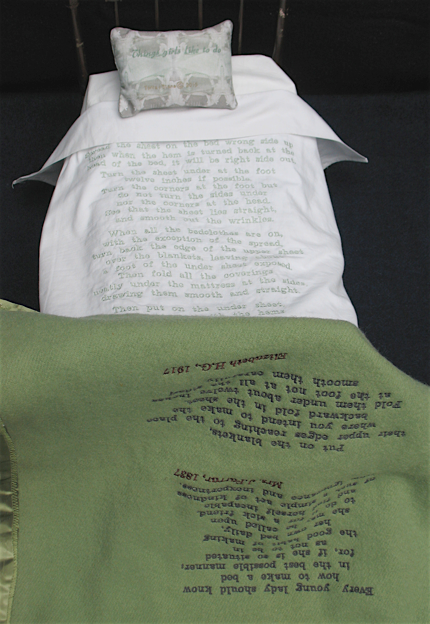 Things girls like to do
the sheet on the bed wrong side up
then when the hem is turned back at the
head of the bed, it will be right side out.
Turn the sheet under at the foot
twelve inches if possible.
Turn the corners at the foot but
do not turn the sides under
nor the corners at the head.
See that the sheet lies straight,
and smooth out the wrinkles.
When all the bedclothes are on,
with the exception of the spread,
turn back the edge of the upper sheet
over the blankets, leaving
a foot of the under sheet exposed.
Then fold all the coverings
neatly under the mattress at the sides
drawing them smooth and straight.
Then put on the under sheet,
the hems
Every young lady should know
how to make a bed
in the best possible manner,
for, if she is so situated
as not to be in
the making
her own bed daily,
called upon
sick friend,
she herself incapable
act of kindness
and inexpertness
Mrs J Farrar, 1837
Put on the blankets,
their upper edges reaching
where you intend to place
backward fold in the
Fold them under about twelve
at the foot not at all
smooth them
Elizabeth H.G., 1917